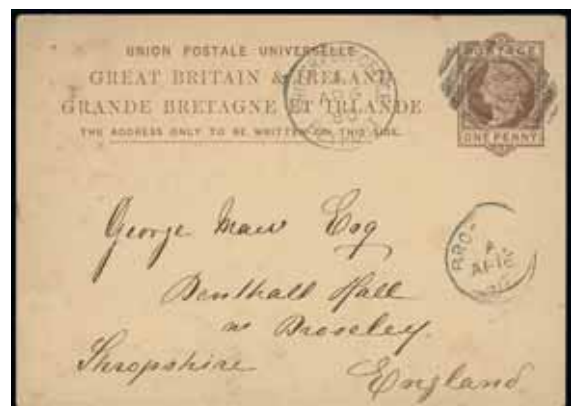 UNION POSTALE UNIVERSELLE
GREAT BRITAIN & IRELAND
GRANDE BRETAGNE ET IRLANDE
THE ADDRESS ONLY TO BE WRITTEN ON THIS SIDE.
POSTAGE
ONE PENNY
George Maw Esq
Benthall Hall
nr Broseley.
Shropshire
England